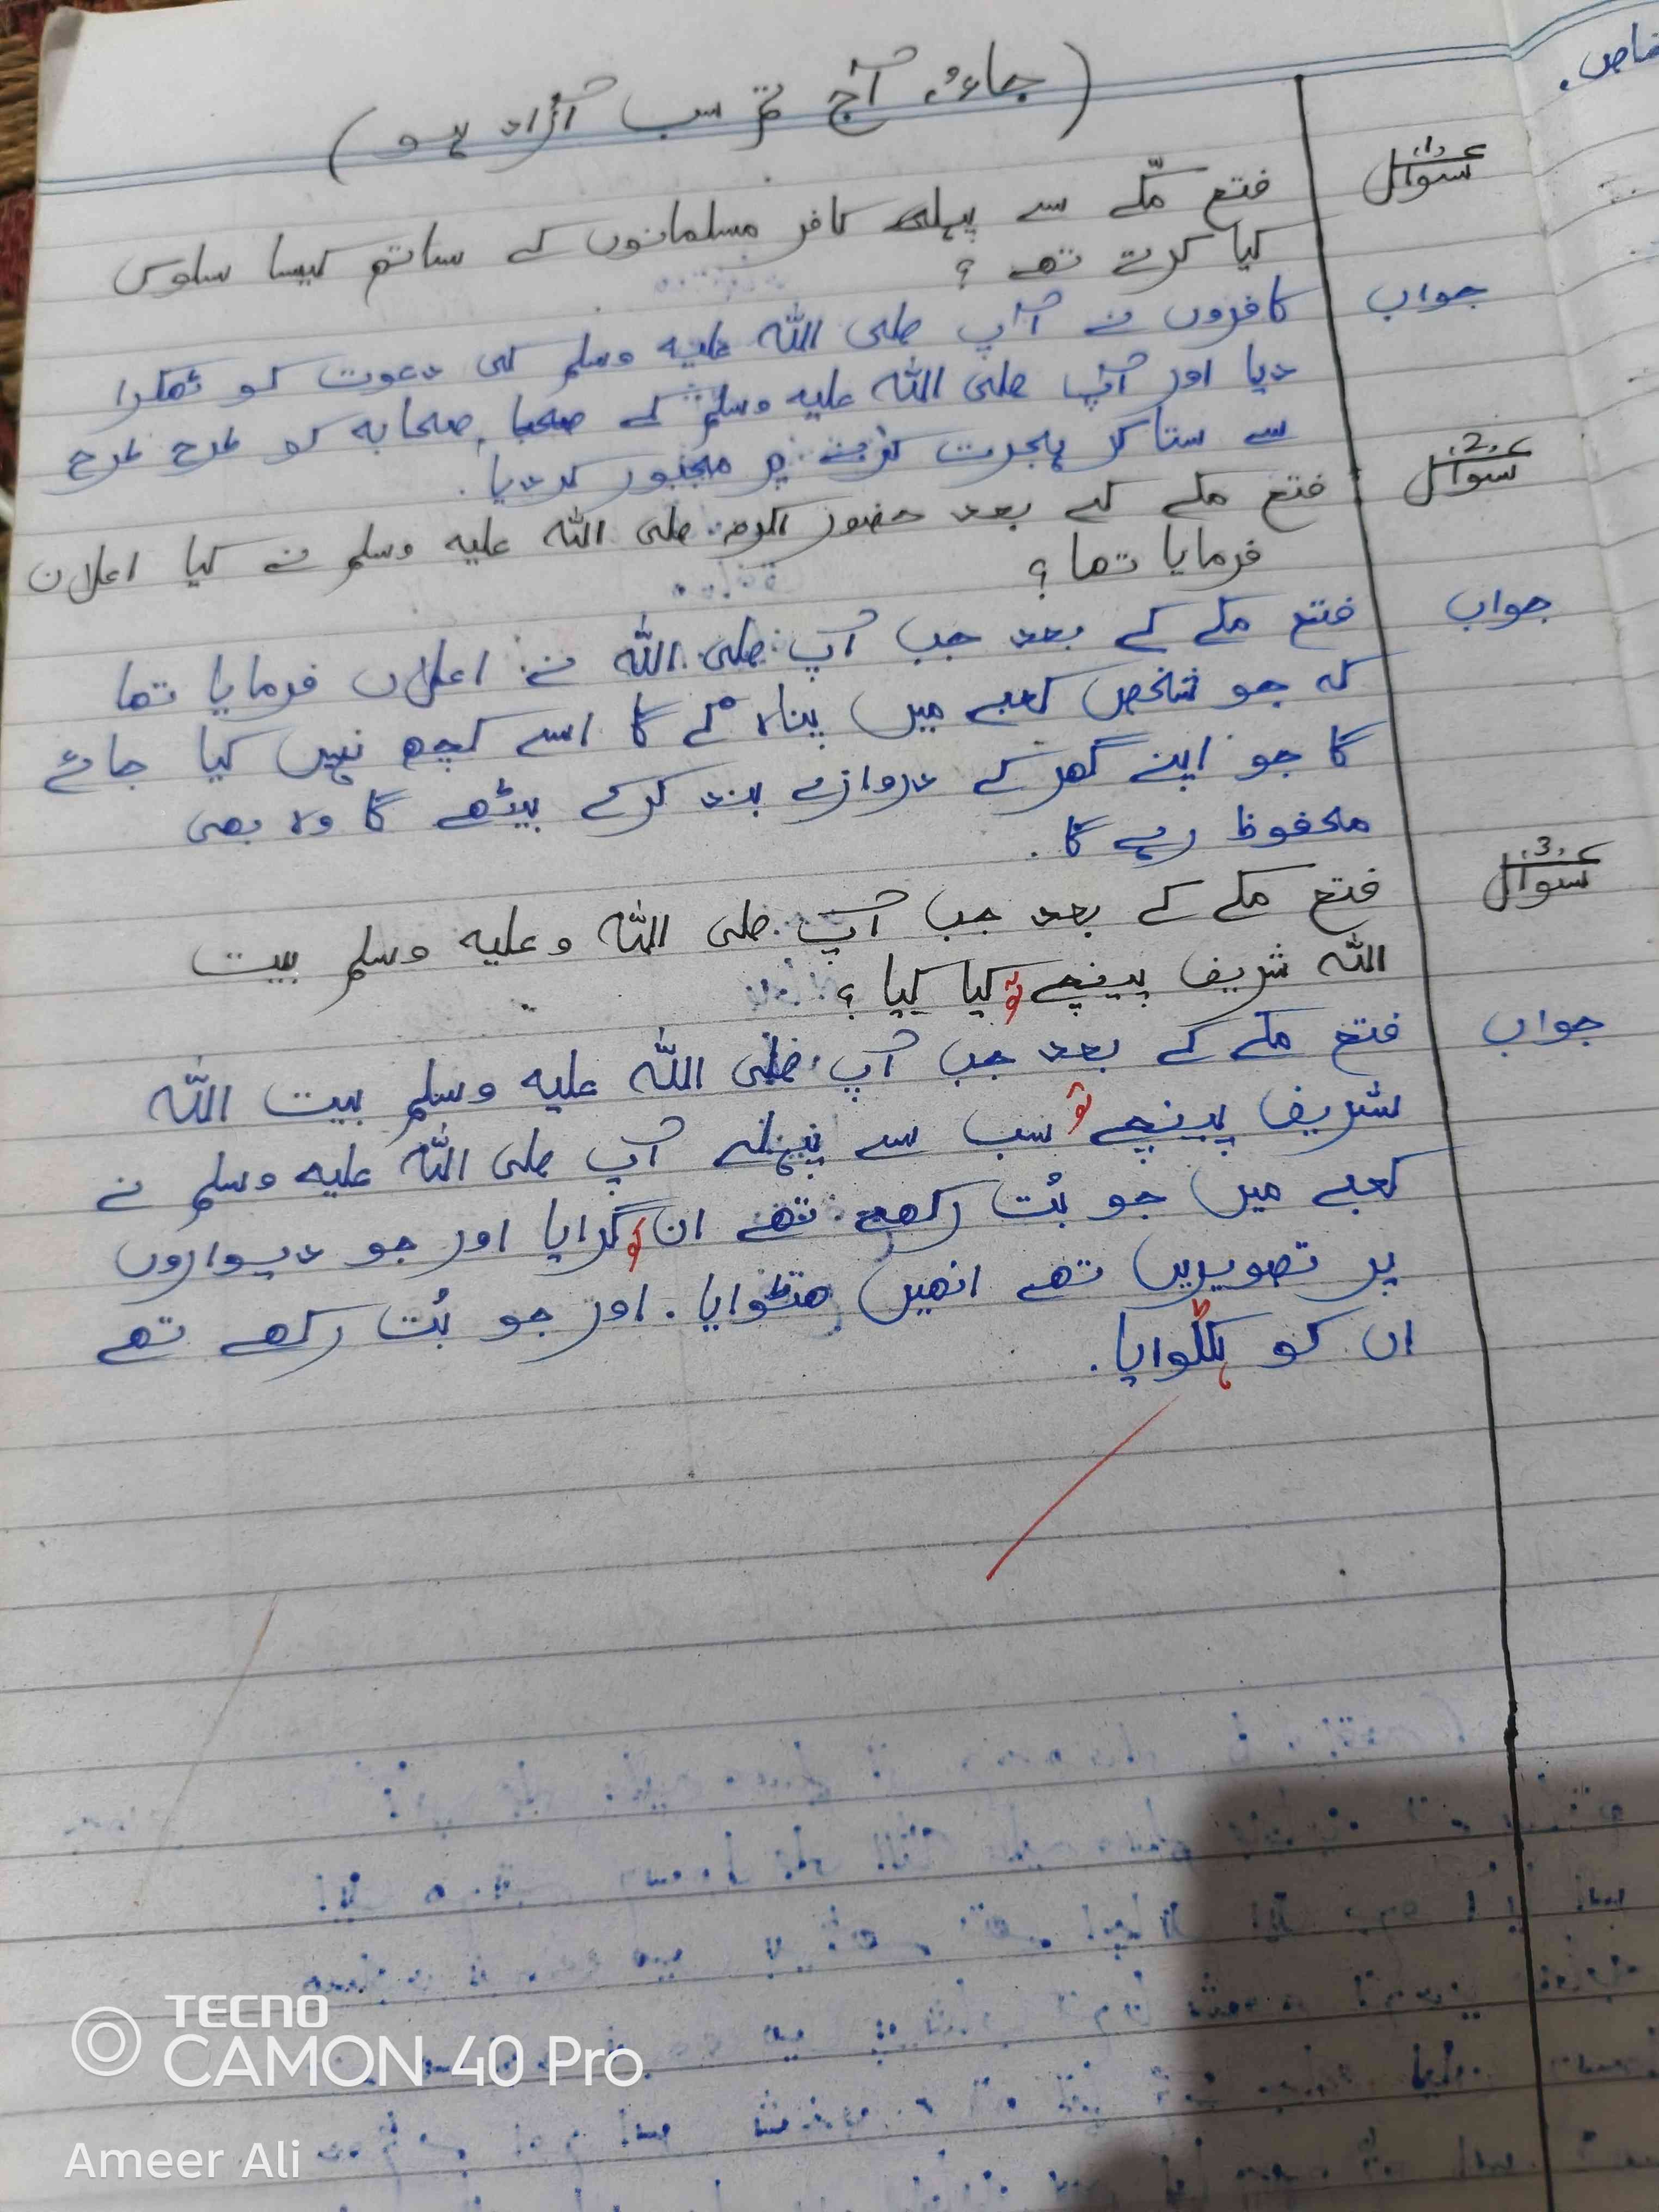 خاص.
(جاءؤ، آج تم سب آزاد ہو)
سوال 1
فتح مکّے سے پہلے کافر مسلمانوں کے ساتھ کیسا سلوک
کیا کرتے تھے ؟
جواب
کافروں نے آپ صلی اللہ علیہ وسلم کی دعوت کو ٹھکرا
دیا اور آپ صلی اللہ علیہ وسلم کے صحابہ کو طرح طرح
سے ستا کر ہجرت کرنے پر مجبور کر دیا.
سوال 2
فتح مکے کے بعد حضور اکرم صلی اللہ علیہ وسلم نے کیا اعلان
فرمایا تھا ؟
جواب
فتح مکے کے بعد جب آپ صلی اللہ نے اعلان فرمایا تھا
کہ جو شخص کعبے میں پناہ لے گا اسے کچھ نہیں کیا جائے
گا جو اپنے گھر کے دروازے بند کرکے بیٹھے گا وہ بھی
محفوظ رہے گا.
سوال 3
فتح مکے کے بعد جب آپ صلی اللہ وعلیہ وسلم بیت
اللہ شریف پہنچے تو کیا کیا ؟
جواب
فتح مکے کے بعد جب آپ صلی اللہ علیہ وسلم بیت اللہ
شریف پہنچے تو سب سے پہلے آپ صلی اللہ علیہ وسلم نے
کعبے میں جو بُت رکھے تھے ان کو گرایا اور جو دیواروں
پر تصویریں تھے انھیں ھٹوایا. اور جو بُت رکھے تھے
ان کو ہٹوایا.
TECNO
CAMON 40 Pro
Ameer Ali